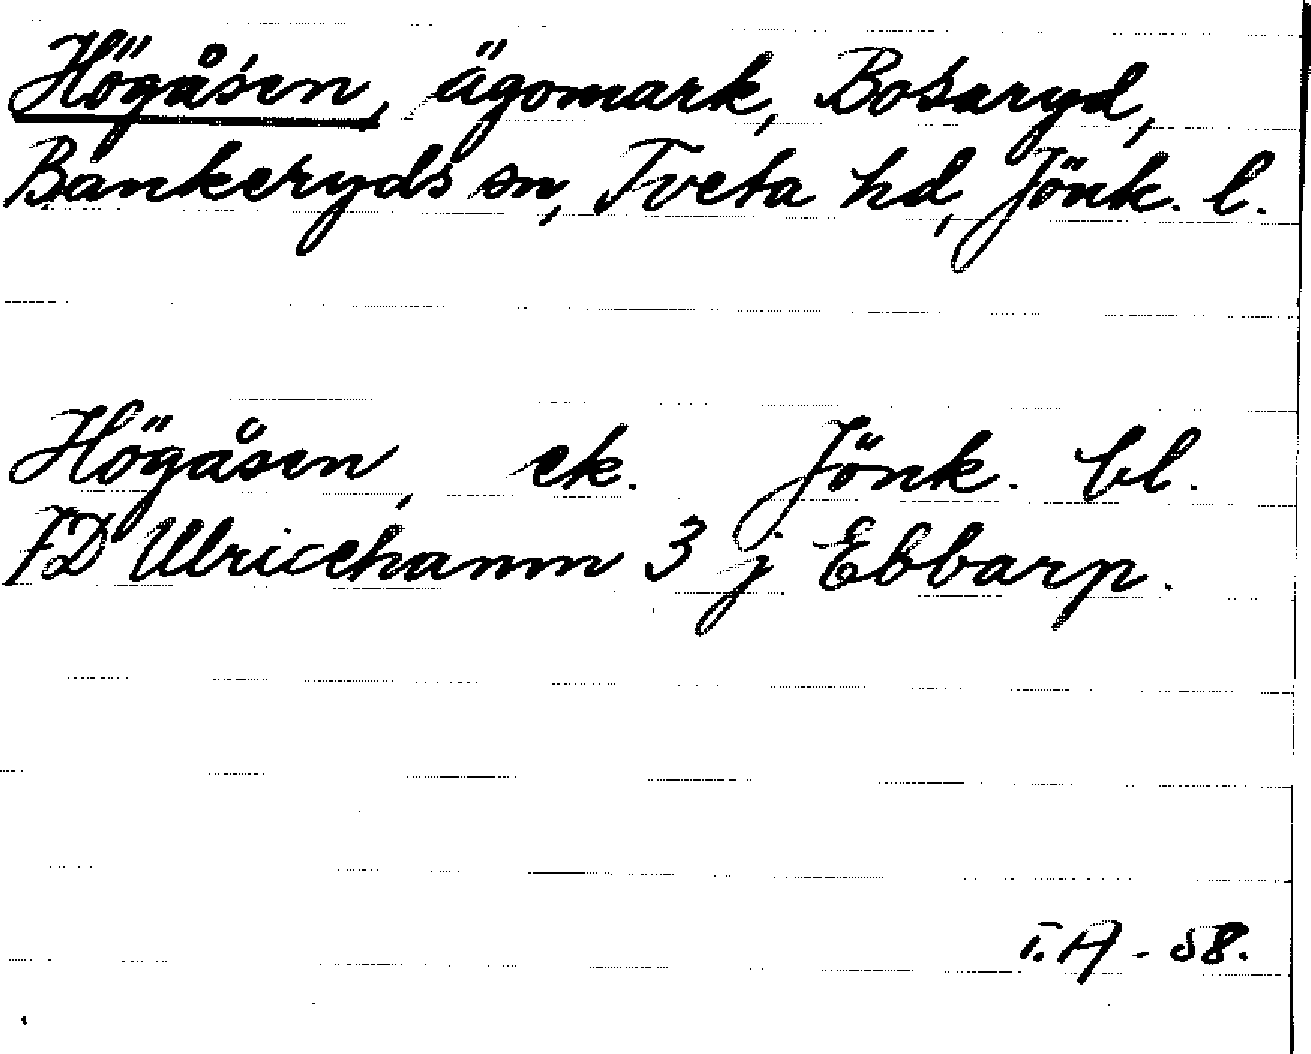 Högåsen, ägomark, Bosaryd,
Bankeryds sn, Tveta hd, Jönk. l.
Högåsen, ek. Jönk. bl.
FD Ulricehamn 3 j Ebbarp.
T.A - 58.